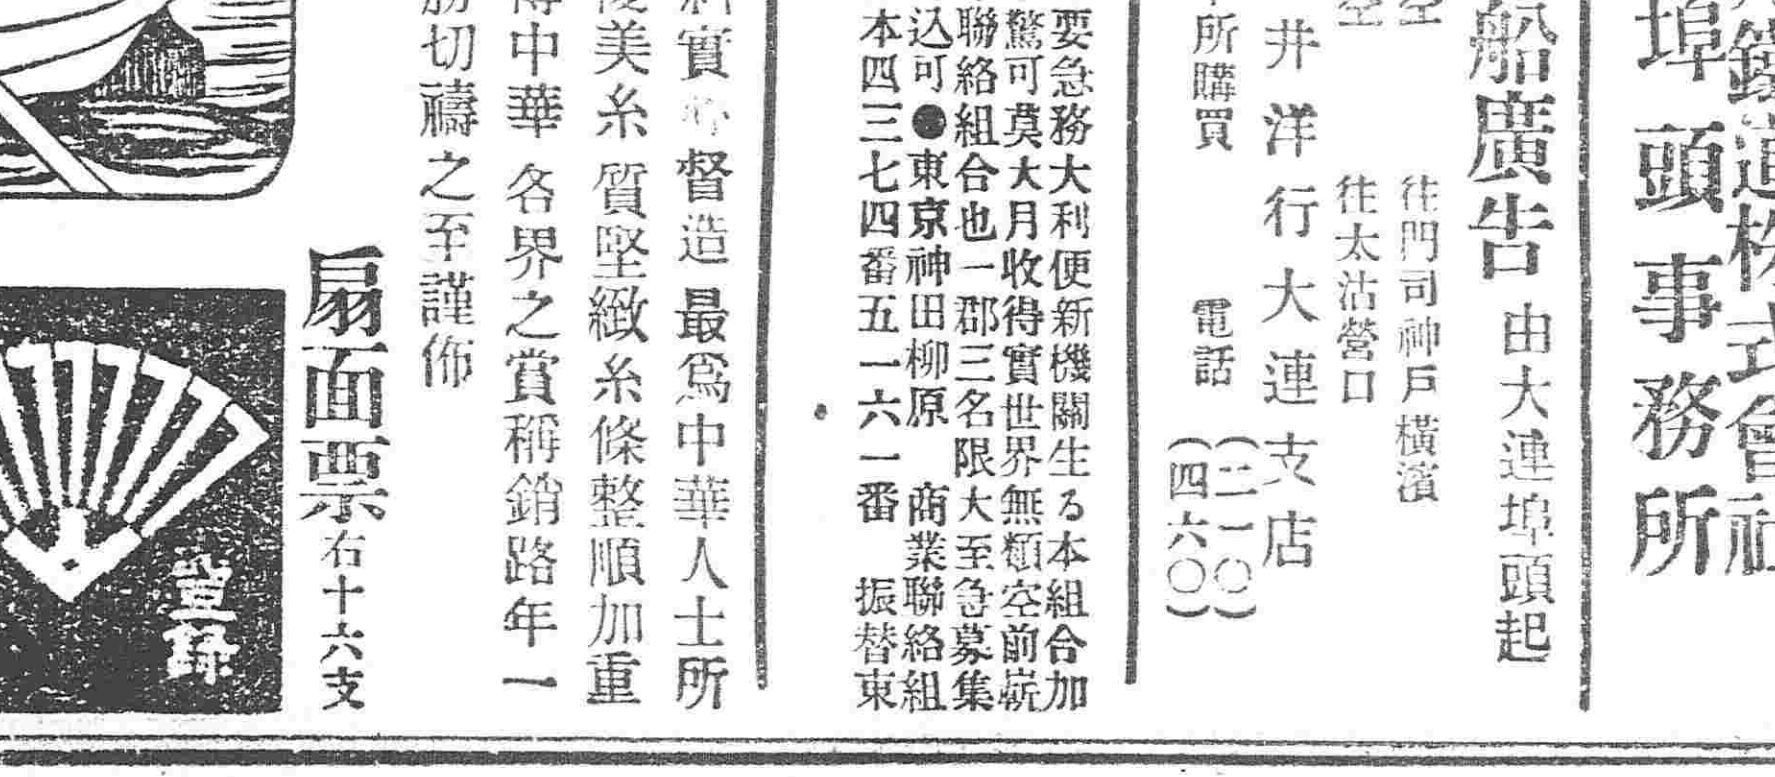 鐵道株式會社
埠頭事務所
船廣告 由大連埠頭起
往門司神戶橫濱
往太沽營口
井洋行大連支店
電話 (二一〇)
(四六〇)
所購買
要急務大利便新機關生る本組合加
驚可莫大月收得實世界無類空前
聯絡組合也一郡三名限大至急募集
込可●東京神田柳原 商業聯絡組
本四三七四番五一六一番 振替東
實 督造最爲中華人士所
美糸質堅緻糸條整順加重
中華各界之賞稱銷路年一
切禱之至謹佈
扇面票
右十六支
登錄